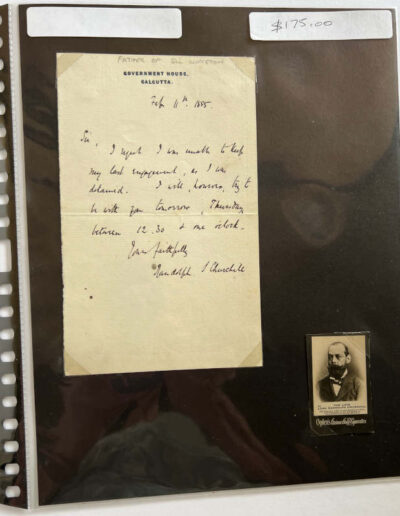 $175.00
FATHER OF SIR WINSTON
GOVERNMENT HOUSE.
CALCUTTA.
Feb. 11th. 1885.
Sir,
I regret I was unable to keep
my last engagement, as I was
detained. I will, however, try to
be with you tomorrow, Thursday,
between 12.30 & one o'clock.
Yours faithfully
Randolph S Churchill
THE LATE
LORD RANDOLPH CHURCHILL
Ogden's Guinea Gold Cigarettes